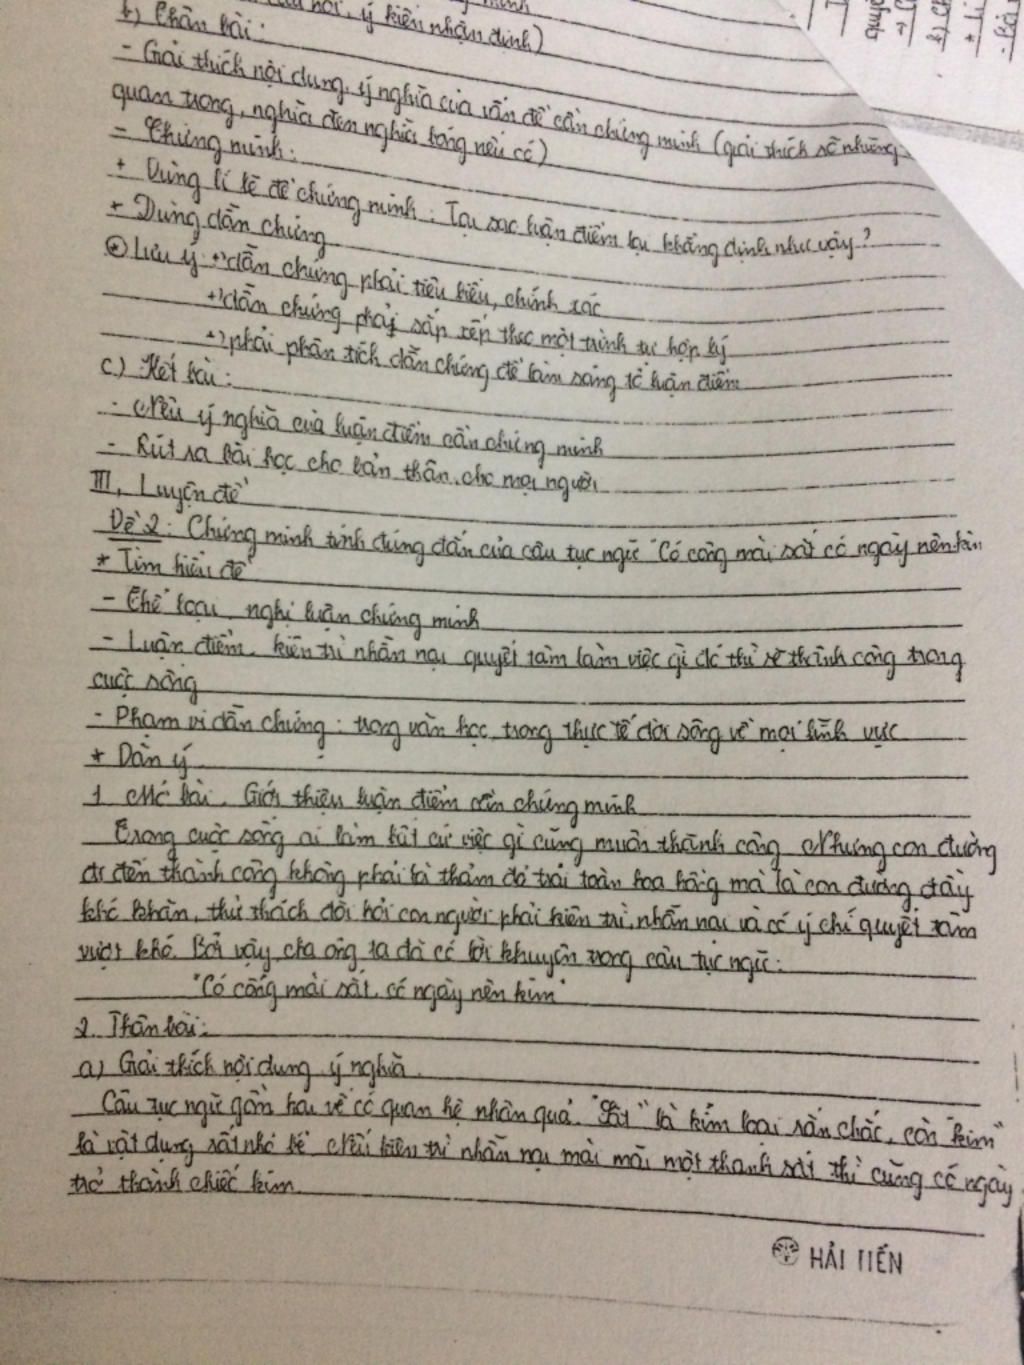 ý kiến nhận định)
b) Thân bài:
- Giải thích nội dung, ý nghĩa của vấn đề cần chứng minh (giải thích từ những
quan trọng, nghĩa đen nghĩa bóng nếu có)
- Chứng minh:
+ Dùng lí lẽ để chứng minh: Tại sao luận điểm lại khẳng định như vậy?
+ Dùng dẫn chứng
* Lưu ý: +) dẫn chứng phải tiêu biểu, chính xác
+) dẫn chứng phải sắp xếp theo một trình tự hợp lý
+) phải phân tích dẫn chứng để làm sáng tỏ luận điểm
c) Kết bài:
- Nêu ý nghĩa của luận điểm cần chứng minh
- Rút ra bài học cho bản thân, cho mọi người
III, Luyện đề
Đề 2: Chứng minh tính đúng đắn của câu tục ngữ "Có công mài sắt có ngày nên kim
* Tìm hiểu đề
- Thể loại, nghị luận chứng minh
- Luận điểm. kiên trì nhẫn nại quyết tâm làm việc gì đó thì sẽ thành công trong
cuộc sống
- Phạm vi dẫn chứng: trong văn học, trong thực tế đời sống về mọi lĩnh vực
* Dàn ý
1 Mở bài. Giới thiệu luận điểm cần chứng minh
Trong cuộc sống ai làm bất cứ việc gì cũng muốn thành công. Nhưng con đường
đi đến thành công không phải là thảm đỏ trải toàn hoa hồng mà là con đường đầy
khó khăn, thử thách đòi hỏi con người phải kiên trì, nhẫn nại và có ý chí quyết tâm
vượt khó. Bởi vậy, cha ông ta đã có lời khuyên trong câu tục ngữ:
"Có công mài sắt, có ngày nên kim"
2. Thân bài:
a) Giải thích nội dung, ý nghĩa
Câu tục ngữ gồm hai vế có quan hệ nhân quả. "Sắt" là kim loại rắn chắc, còn "kim"
là vật dụng rất nhỏ bé. Nếu kiên trì nhẫn nại mài mãi một thanh sắt thì cũng có ngày
trở thành chiếc kim
HẢI TIẾN